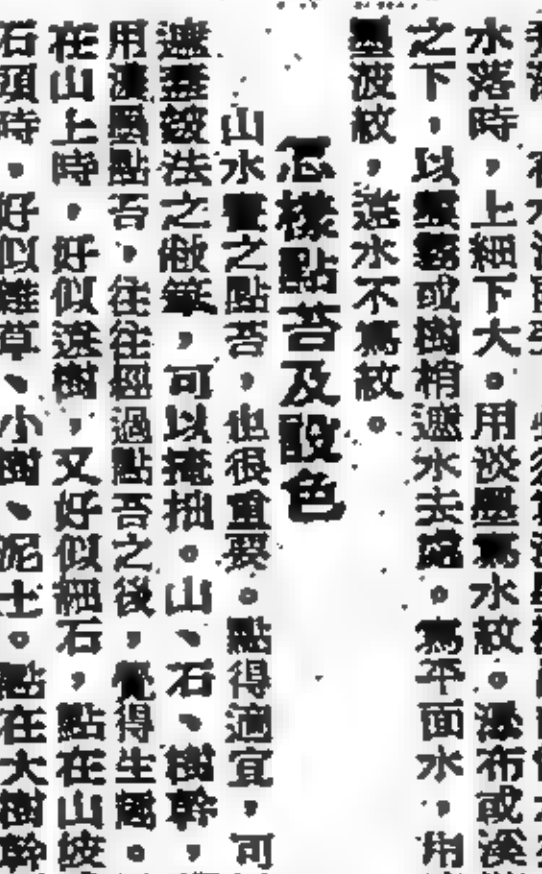 水落時，上細下大。用淡墨寫水紋。瀑布或溪
之下，以雲霧或樹梢遮水去處。寫平面水，用
墨波紋，遠水不寫紋。
怎樣點苔及設色
山水畫之點苔，也很重要。點得適宜，可
遮蓋皴法之敗筆，可以掩拙。山、石、樹幹，
用濃墨點苔，往往經過點苔之後，覺得生意。
在山上時，好似遠樹，又好似細石，點在山
石頭時，好似雜草、小樹、泥土。點在大樹幹